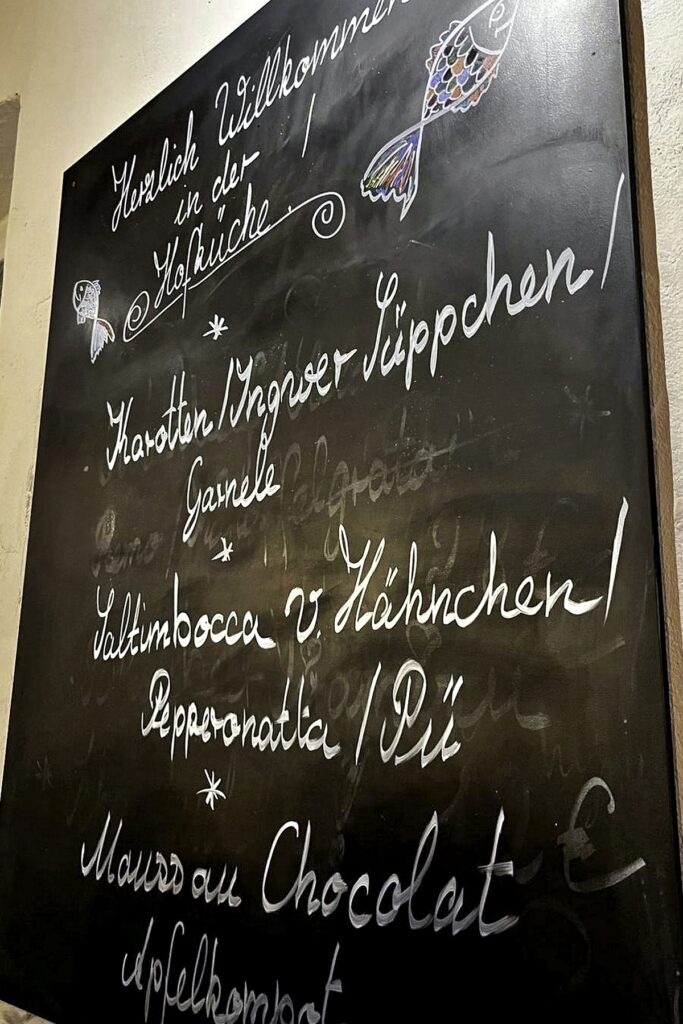 Herzlich Willkommen
in der !
Hofküche.
Karotten/Ingwer Süppchen/
Garnele
Saltimbocca v. Hähnchen/
Pepperonatta / Pü
Mouss au Chocolat
Apfelkompot
€